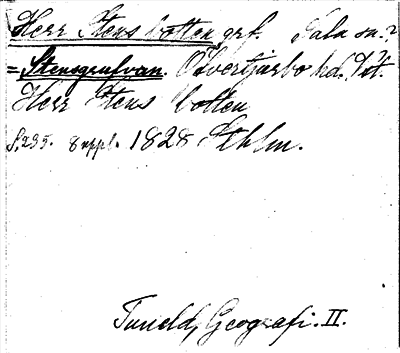 Herr Stens botten grf. Sala sn.?
= Stensgrufvan. Övertjurbo hd. Vstm.
Herr Stens botten
S. 235. 8 uppl. 1828 Sthlm.
Tuneld, Geografi. II.